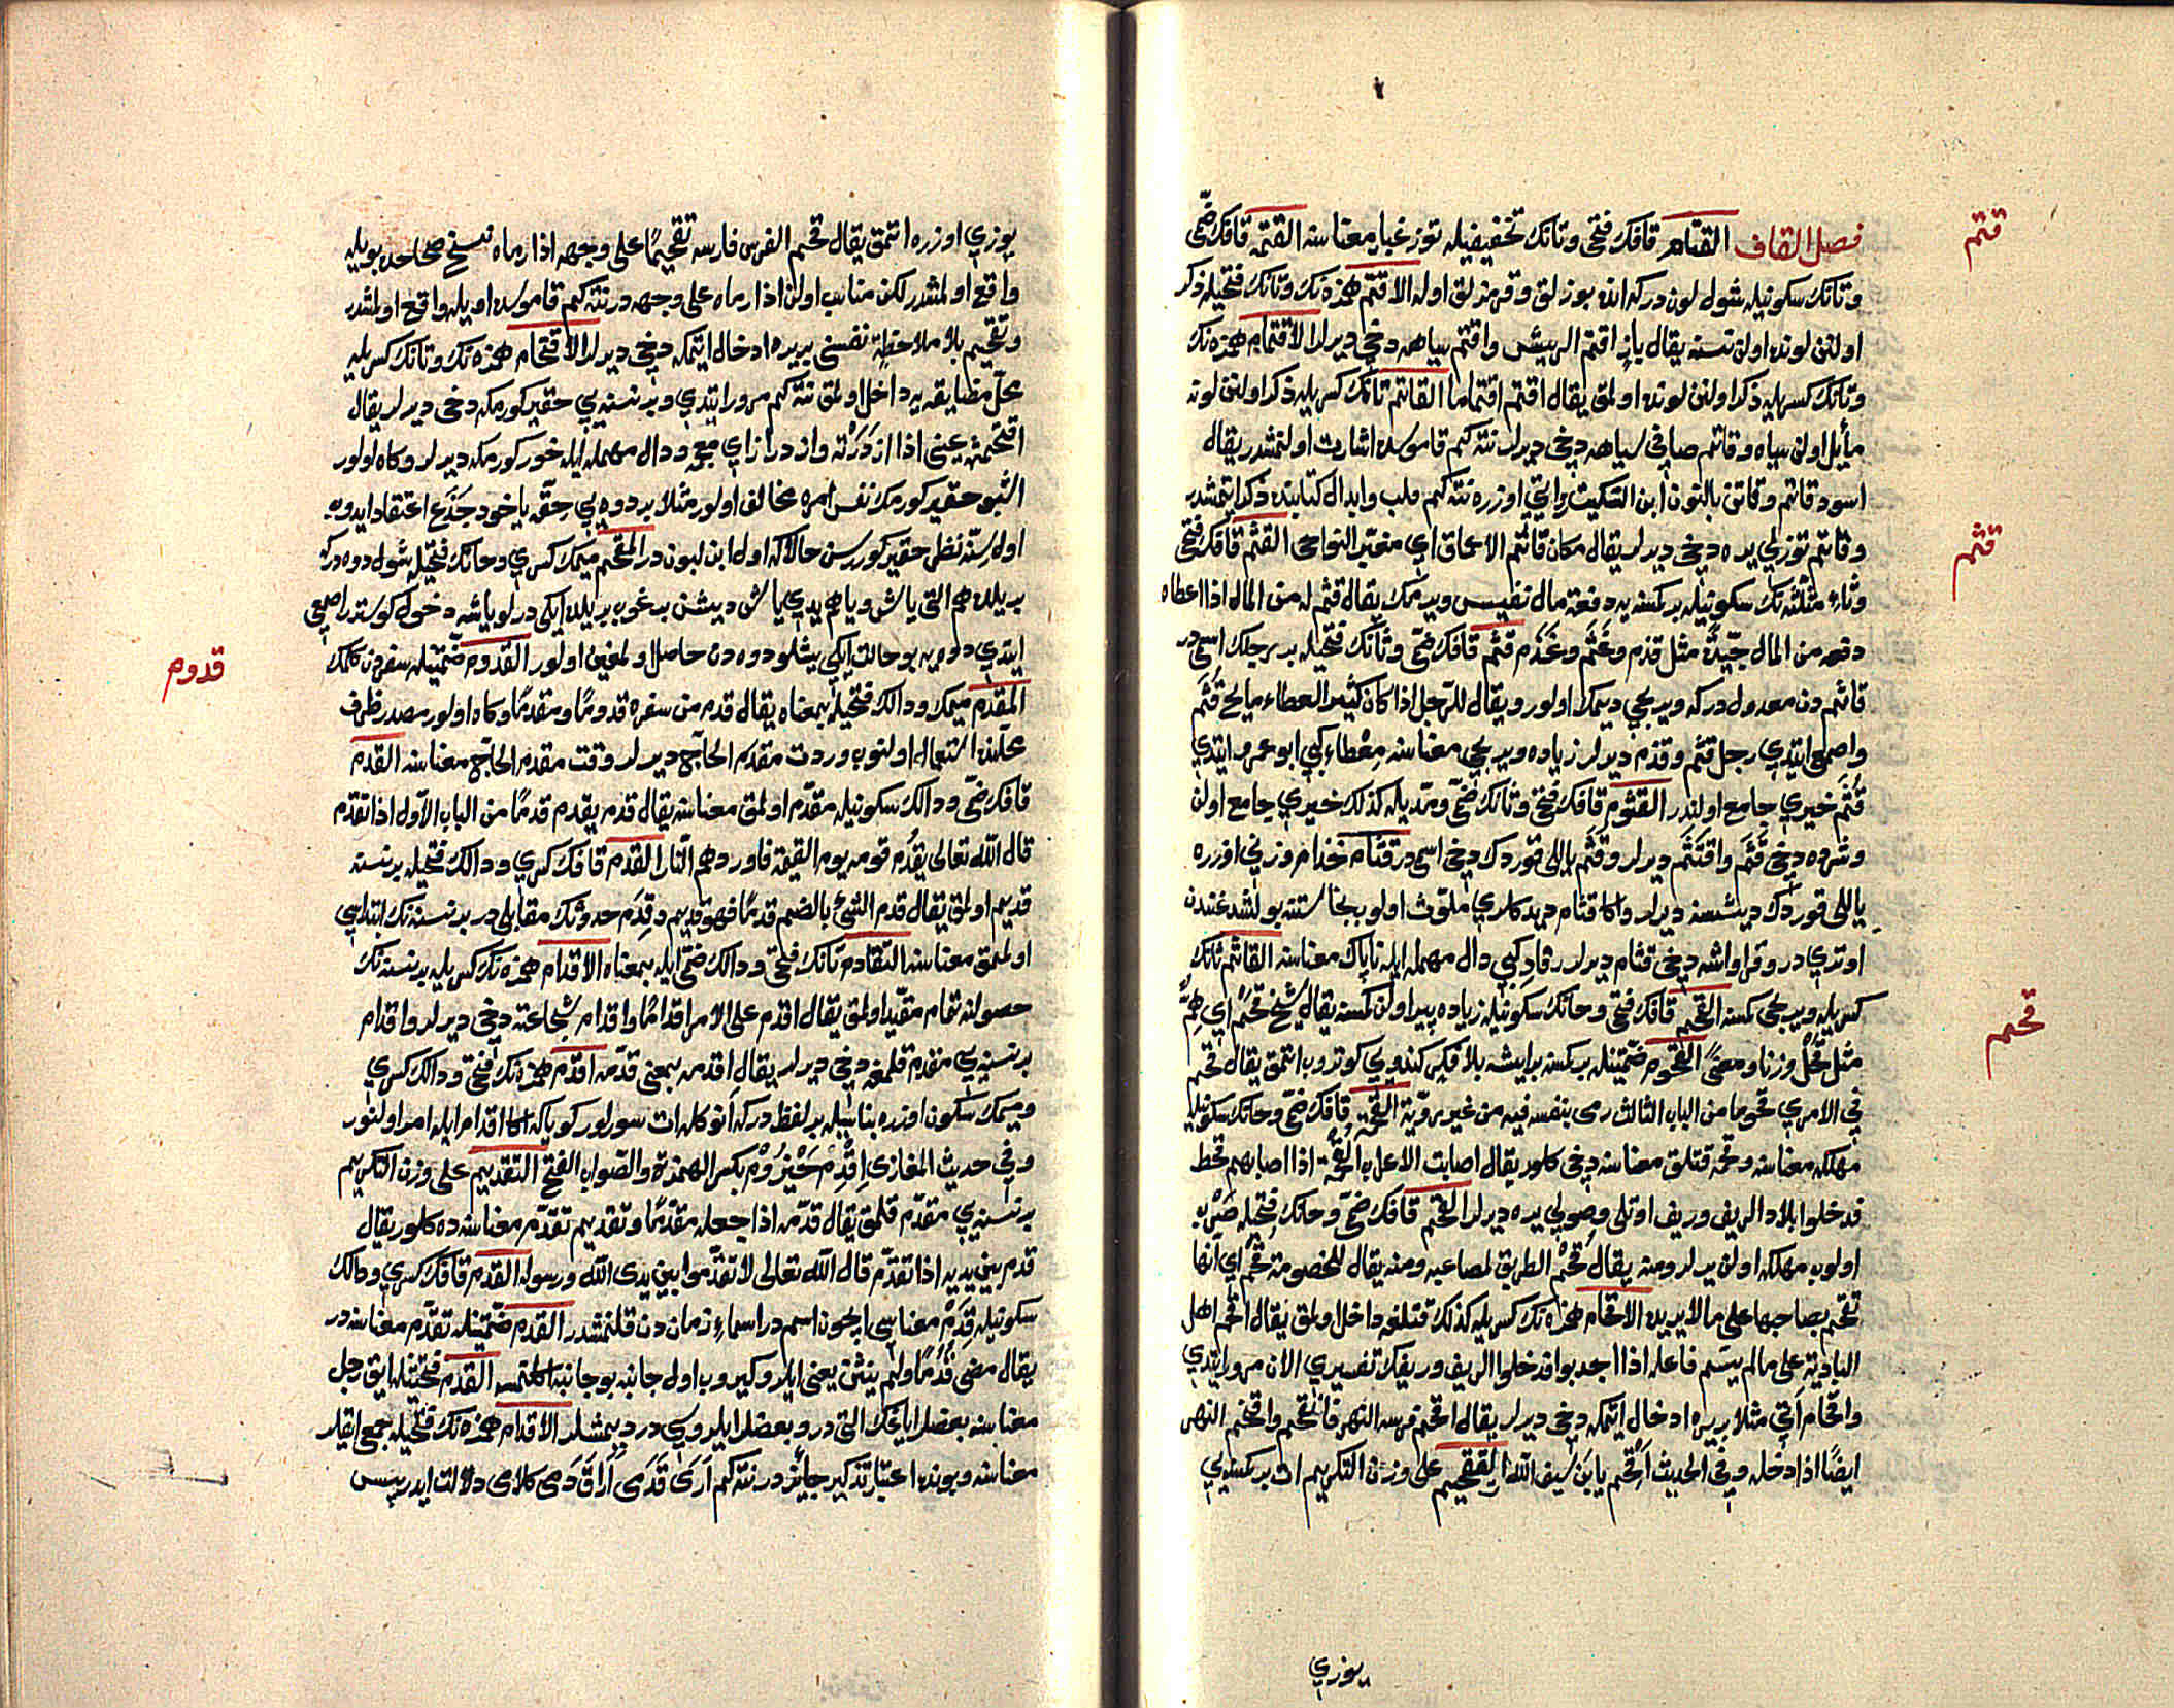 قتم
فصل القاف القتام قافك فتحى وتانك تخفيفيله توز غبار معناسنه القتمه قافك ضمى
وتانك سكونيله شول لوندركه انده بوزلق وقرمزلق اوله الاقتم همزه نك وتانك فتحيله ذكر
اولنن لونده اولن نسنه يقال باز اقتم الريش واقتم سياهه دخى ديرلر الاقتمام همزه نك
وتانك كسريله ذكر اولنن لونده اولمق يقال اقتم اقتماما القاتم تانك كسريله ذكر اولنن لونه
مائل اولن سياه وقاتم صافى سياهه دخى ديرلر نته كم قاموسده اشارت اولنمشدر يقال
اسود قاتم وقاتن بالنون ابن السكيت روايتى اوزره نته كم قلب وابدال كتابنده ذكر ايتمشدر
قثم
وقاتم توزلى يره دخى ديرلر يقال مكان قاتم الاعماق اى مغبر النواحى القثم قافك فتحى
وثاء مثلثه نك سكونيله بر كمسنه يه دفعة مال نفيس ويرمك يقال قثم له من المال اذا اعطاه
دفعه من المال جيدة مثل قذم وغثم وغذم قثم قافك ضمى وثانك فتحيله بر رجلك اسمى در
قاثم دن معدول دركه ويريجى ديمك اولور ويقال للرجل اذا كان كثير العطاء مايح قثم
واصمعى ايتدى رجل قثم وقذم ديرلر زياده ويريجى معناسنه معطاء كبى ابو عمرو ايتدى
قثم خيرى جامع اولندر القثوم قافك فتحى وثانك ضمى ومديله كذلك خيرى جامع اولن
وشروه دخى قثم واقتثم ديرلر وقثم ياللى قوردك دخى اسمى در قثام خذام وزنى اوزره
ياللى قوردك ديشسنه ديرلر واكا قثام ديدكلرى ملوث اولوب نجاستنه بولشدغندن
اوترى در وقراواشه دخى قثام ديرلر رقاد كبى دال مهمله ايله ناپاك معناسنه القاثم ثانك
قحم
كسريله ويريجى كمسنه القحم قافك فتحى وحانك سكونيله زياده پير اولن كمسنه يقال شيخ قحم اى هم
مثل قحل وزنا ومعنى القحوم ضمتينله بر كمسنه بر ايشه بلا فكر كندوي كوتروب اتمق يقال قحم
فى الامر قحوما من الباب الثالث رمى بنفسه فيه من غير روية القحمه قافك ضمى وحانك سكونيله
مهلكه معناسنه وقحمه قتلق معناسنه دخى كلور يقال اصابت الاعراب القحمة اذا اصابهم قحط
فدخلوا بلاد الريف وريف اوتلى وصولى يره ديرلر القحم قافك ضمى وحانك فتحيله صرپ
اولوب مهلكه اولن يرلر ومنه يقال قحم الطريق لمصاعبه ومنه يقال للخصومة قحم اى انها
تقحم بصاحبها على ما لا يريده الاقحام همزه نك كسريله كذلك قتلغه داخل اولمق يقال اقحم اهل
البادية على ما لم يسم فاعله اذا اجدبوا فدخلوا الريف وريفك تفسيرى الان مرور ايتدى
واقحام آتى مثلا بر يره ادخال ايتمكه دخى ديرلر يقال اقحم فرسه النهر فانقحم واقتحم النهر
ايضا اذا دخله وفى الحديث اقحم يا ابن سيف الله التقحيم على وزن التكريم ات بر كمسنه يى
يوزى
يوزى اوزره اتمق يقال قحم الفرس فارسه تقحيما على وجهه اذا رماه نسخ صحاحده بويله
واقع اولمشدر لكن مناسب اولن اذا رماه على وجهه در نته كم قاموسده اويله واقع اولمشدر
وتقحيم بلا ملاحظه نفسنى بر يره ادخال ايتمكه دخى ديرلر الاقتحام همزه نك وتانك كسريله
محل مضايقه يه داخل اولمق نته كم مرور ايتدى وبر نسنه يى حقير كورمكه دخى ديرلر يقال
اقتحمته عينى اذا ازدرته وازدرا زاى معجمه ودال مهمله ايله خور كورمكه ديرلر وكاه اولور
اشبو حقير كورمك نفس امره مخالف اولور مثلا بر دوه يى حقه ياخود جذع اعتقاد ايدوب
اول سنه نظرله حقير كوررسن حالانكه اول ابن لبوندر المقحم ميمك كسرى وحانك فتحيله شول دوه دركه
بر يلده هم التى ياش ويا هم يدى ياش ديشن برغوب بر يلده ايكى درلو ياشه دخولى كوستر اصمعى
قدوم
ايتدى دوه يه بو حالت ايكى پشلو دوه دن حاصل اولمغين اولور القدوم ضمتينله سفردن كلمك
المقدم ميمك ودالك فتحيله بمعناه يقال قدم من سفره قدوما ومقدما وكاه اولور مصدر ظرف
محلنده استعمال اولنوب وردت مقدم الحاج ديرلر وقت مقدم الحاج معناسنه القدم
قافك ضمى ودالك سكونيله مقدم اولمق معناسنه يقال قدم يقدم قدما من الباب الاول اذا تقدم
قال الله تعالى يقدم قومه يوم القيمة فاوردهم النار القدم قافك كسرى ودالك فتحيله بر نسنه
قديم اولمق يقال قدم الشئ بالضم قدما فهو قديم وقدم حدوثك مقابلى در بر نسنه نك ابتداسى
اولممق معناسنه التقادم تانك فتحى ودالك ضمى ايله بمعناه الاقدام همزه نك كسريله بر نسنه نك
حصولنه تمام مقيد اولمق يقال اقدم على الامر اقداما واقدام شجاعته دخى ديرلر واقدام
بر نسنه يى مقدم قلمغه دخى ديرلر يقال اقدمه بمعنى قدمه اقدم همزه نك فتحى ودالك كسرى
وميمك سكون اوزره بناسيله بر لفظ دركه انوكله ات سورلر كوياكه اكا اقدام ايله امر اولنور
وفى حديث المغازى اقدم حيزوم بكسر الهمزة والصواب الفتح التقديم على وزن التكريم
بر نسنه يى مقدم قلمق يقال قدمه اذا جعله مقدما وتقديم تقدم معناسنه ده كلور يقال
قدم بين يديه اذا تقدم قال الله تعالى لا تقدموا بين يدى الله ورسوله القدم قافك كسرى ودالك
سكونيله قدم معناسى ايچون اسم در اسماء زمان دن قلنمشدر القدم ضمتينله تقدم معناسنه در
يقال مضى قدما ولم ينثن يعنى ايلرو كيروب اول جانبه بو جانبه القدم فتحتينله ايق رجل
معناسنه بعضلر اياغك التى در وبعضلر ايلروسى در ديمشلر الاقدام همزه نك فتحيله جمع ايقلر
معناسنه وبونده اعتبار تذكير جائز در نته كم ارى قدمى اراق دمى كلامى دلالت ايدر پس